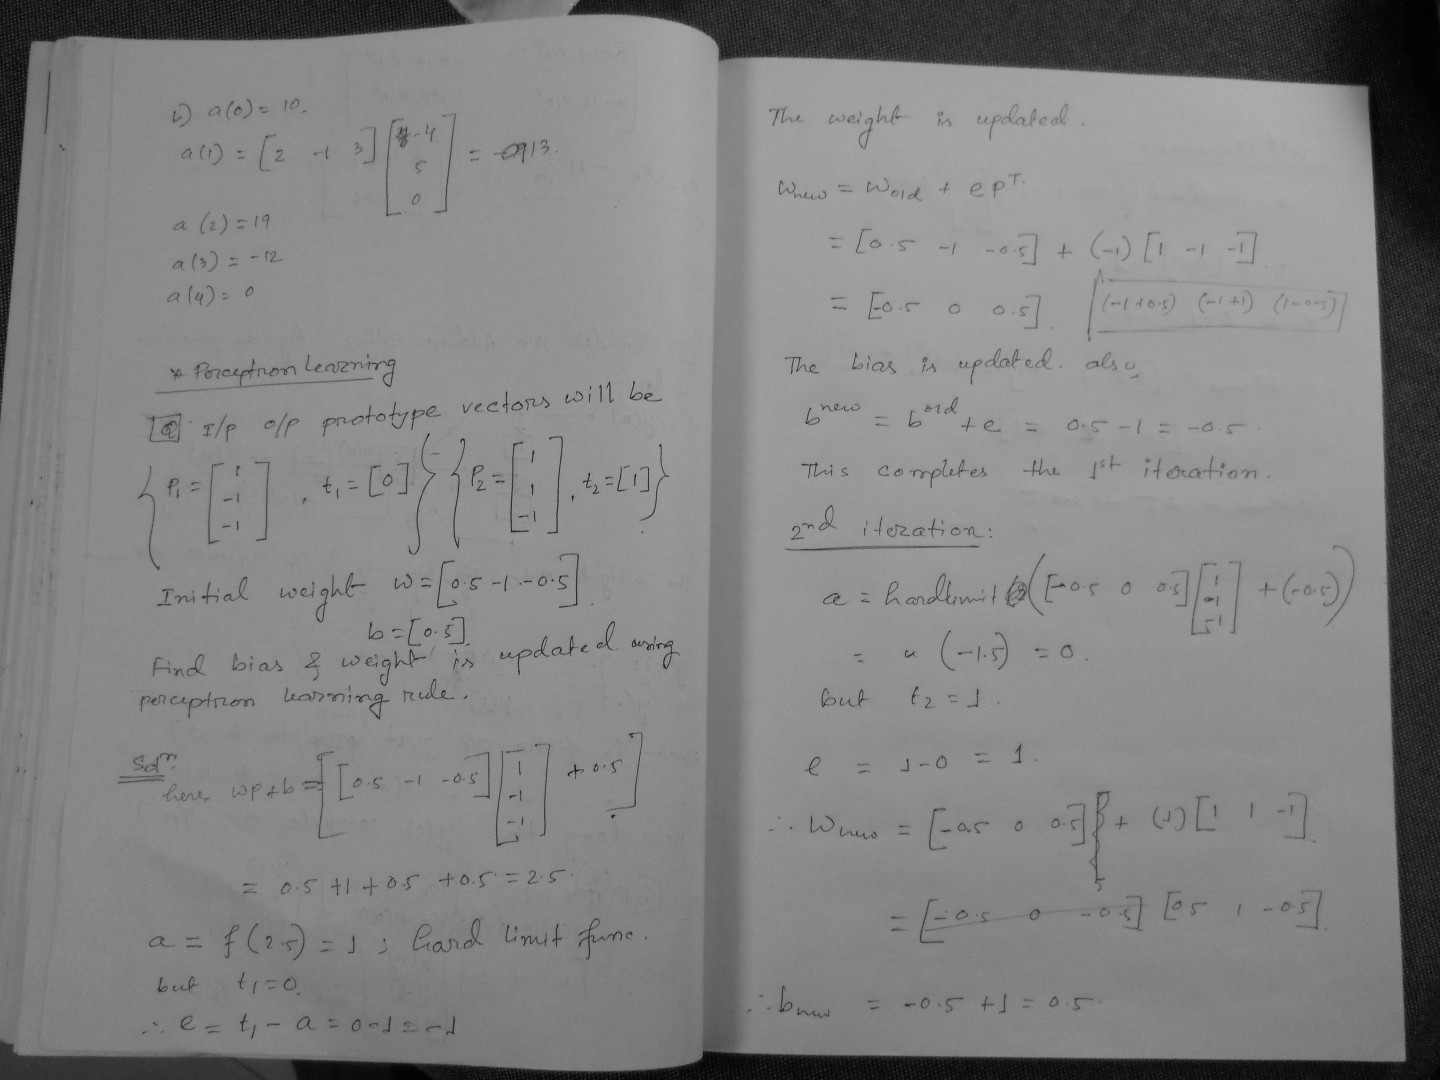 i) a(0) = 10.
a(1) = [2 -1 3] [-4 5 0] = 13.
a(2) = 19
a(3) = -12
a(4) = 0
* Perceptron Learning
Q I/p o/p prototype vectors will be
{P1 = [1 -1 -1], t1 = [0]} {P2 = [1 1 -1], t2 = [1]}
Initial weight W = [0.5 -1 -0.5]
b = [0.5]
Find bias & weight is updated using
perceptron learning rule.
Soln.
here, wp+b = [[0.5 -1 -0.5] [1 -1 -1] + 0.5]
= 0.5 +1 +0.5 +0.5 = 2.5.
a = f(2.5) = 1 ; hard limit func.
but t1 = 0.
∴ e = t1 - a = 0-1 = -1
The weight is updated.
Wnew = Wold + e pT.
= [0.5 -1 -0.5] + (-1) [1 -1 -1]
= [-0.5 0 0.5] (-1+0.5) (-1+1) (1-0.5)
The bias is updated. also,
b new = b old + e = 0.5 - 1 = -0.5.
This completes the 1st iteration.
2nd iteration:
a = hardlimit ([-0.5 0 0.5] [1 -1 -1] + (-0.5))
= " (-1.5) = 0.
but t2 = 1.
e = 1-0 = 1.
∴ Wnew = [-0.5 0 0.5] + (1) [1 1 -1]
= [-0.5 0 -0.5] [0.5 1 -0.5]
∴ bnew = -0.5 + 1 = 0.5.